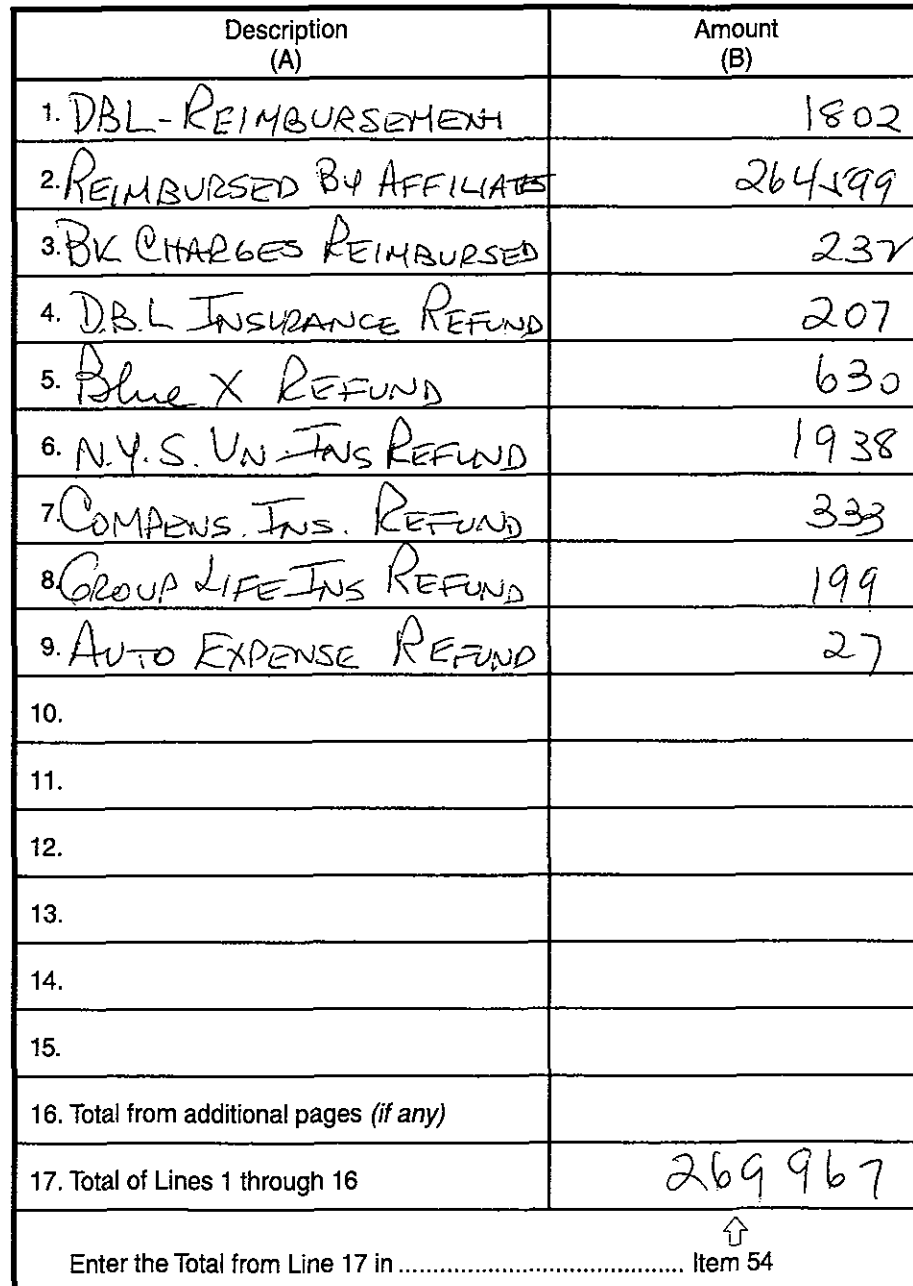 Description
(A)
Amount
(B)
1. DBL-REIMBURSEMENT 1802
2. REIMBURSED BY AFFILIATES 264599
3. BK CHARGES REIMBURSED 232
4. D.B.L INSURANCE REFUND 207
5. Blue X REFUND 630
6. N.Y.S. UN-INS REFUND 1938
7. COMPENS. INS. REFUND 333
8. GROUP LIFE INS REFUND 199
9. AUTO EXPENSE REFUND 27
10.
11.
12.
13.
14.
15.
16. Total from additional pages (if any)
17. Total of Lines 1 through 16 269 967
Enter the Total from Line 17 in ........................................ Item 54